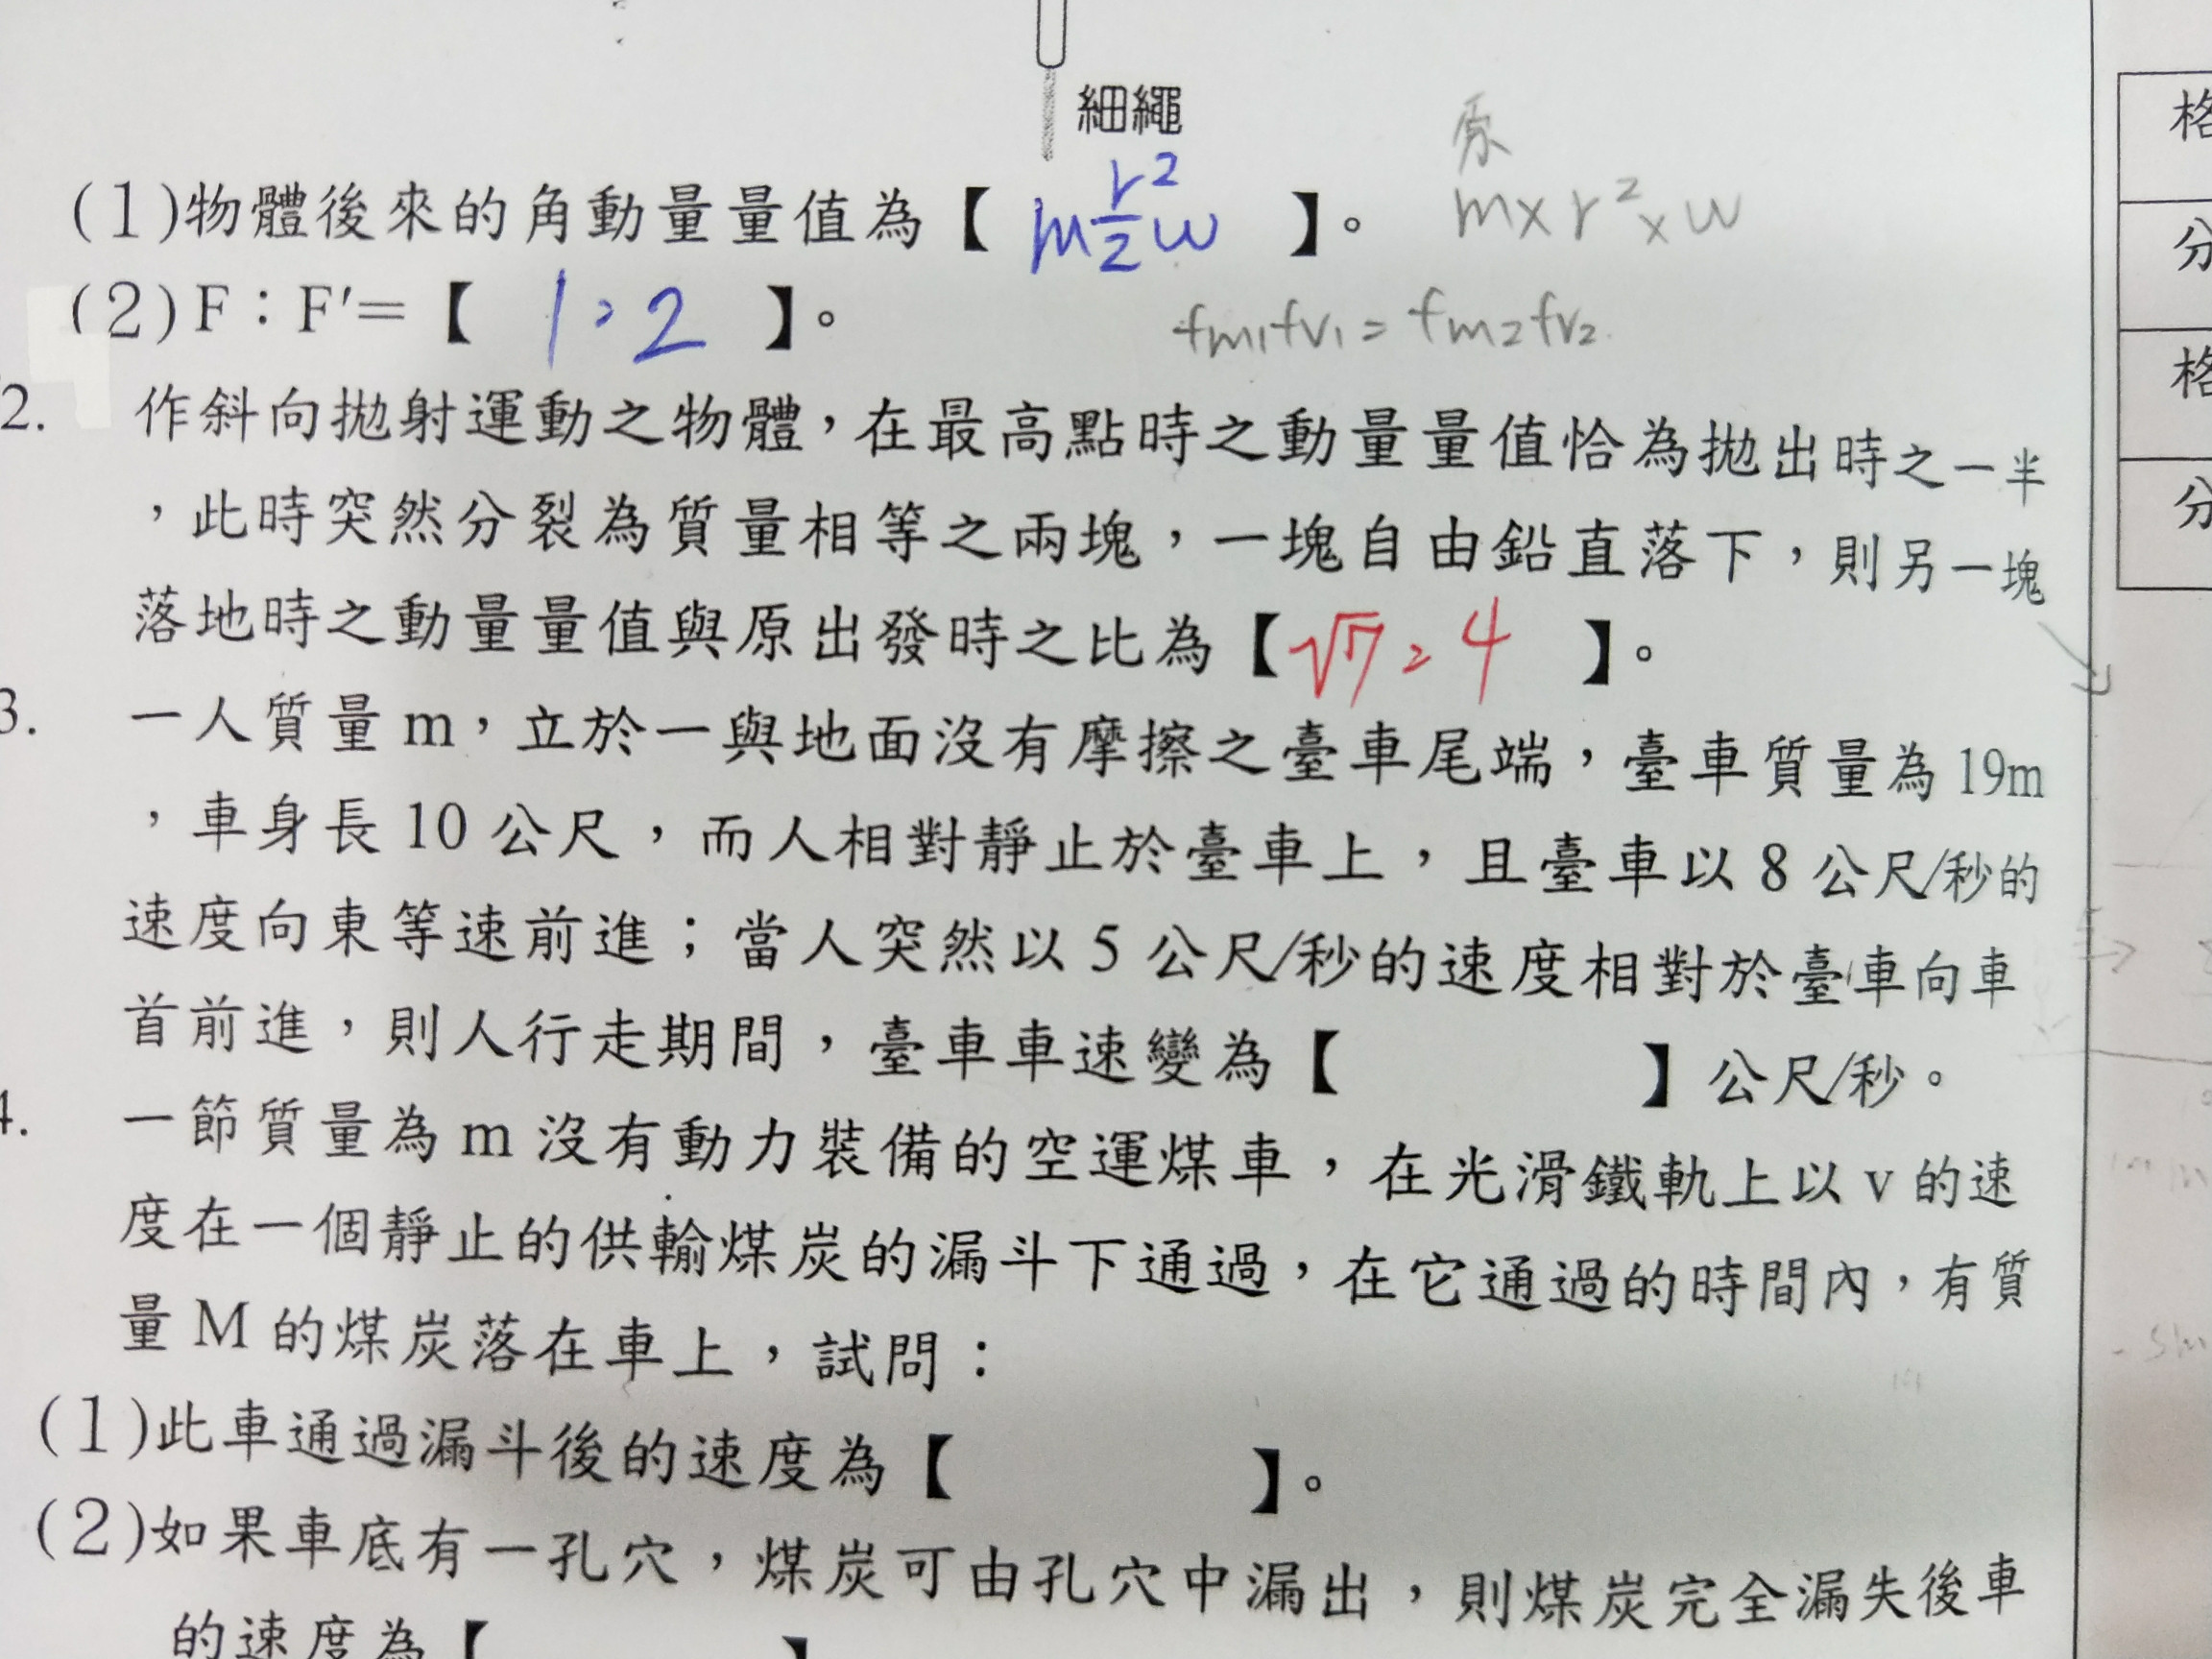 細繩
原
(1)物體後來的角動量量值為【 m r²/2 w 】。 m×r²×w
(2)F:F′=【 1:2 】。
2. 作斜向拋射運動之物體,在最高點時之動量量值恰為拋出時之一半
,此時突然分裂為質量相等之兩塊,一塊自由鉛直落下,則另一塊
落地時之動量量值與原出發時之比為【√7:4 】。
3. 一人質量m,立於一與地面沒有摩擦之臺車尾端,臺車質量為19m
,車身長10公尺,而人相對靜止於臺車上,且臺車以8公尺/秒的
速度向東等速前進;當人突然以5公尺/秒的速度相對於臺車向車
首前進,則人行走期間,臺車車速變為【 】公尺/秒。
4. 一節質量為m沒有動力裝備的空運煤車,在光滑鐵軌上以v的速
度在一個靜止的供輸煤炭的漏斗下通過,在它通過的時間內,有質
量M的煤炭落在車上,試問:
(1)此車通過漏斗後的速度為【 】。
(2)如果車底有一孔穴,煤炭可由孔穴中漏出,則煤炭完全漏失後車
的速度為【 】
格
分
格
分